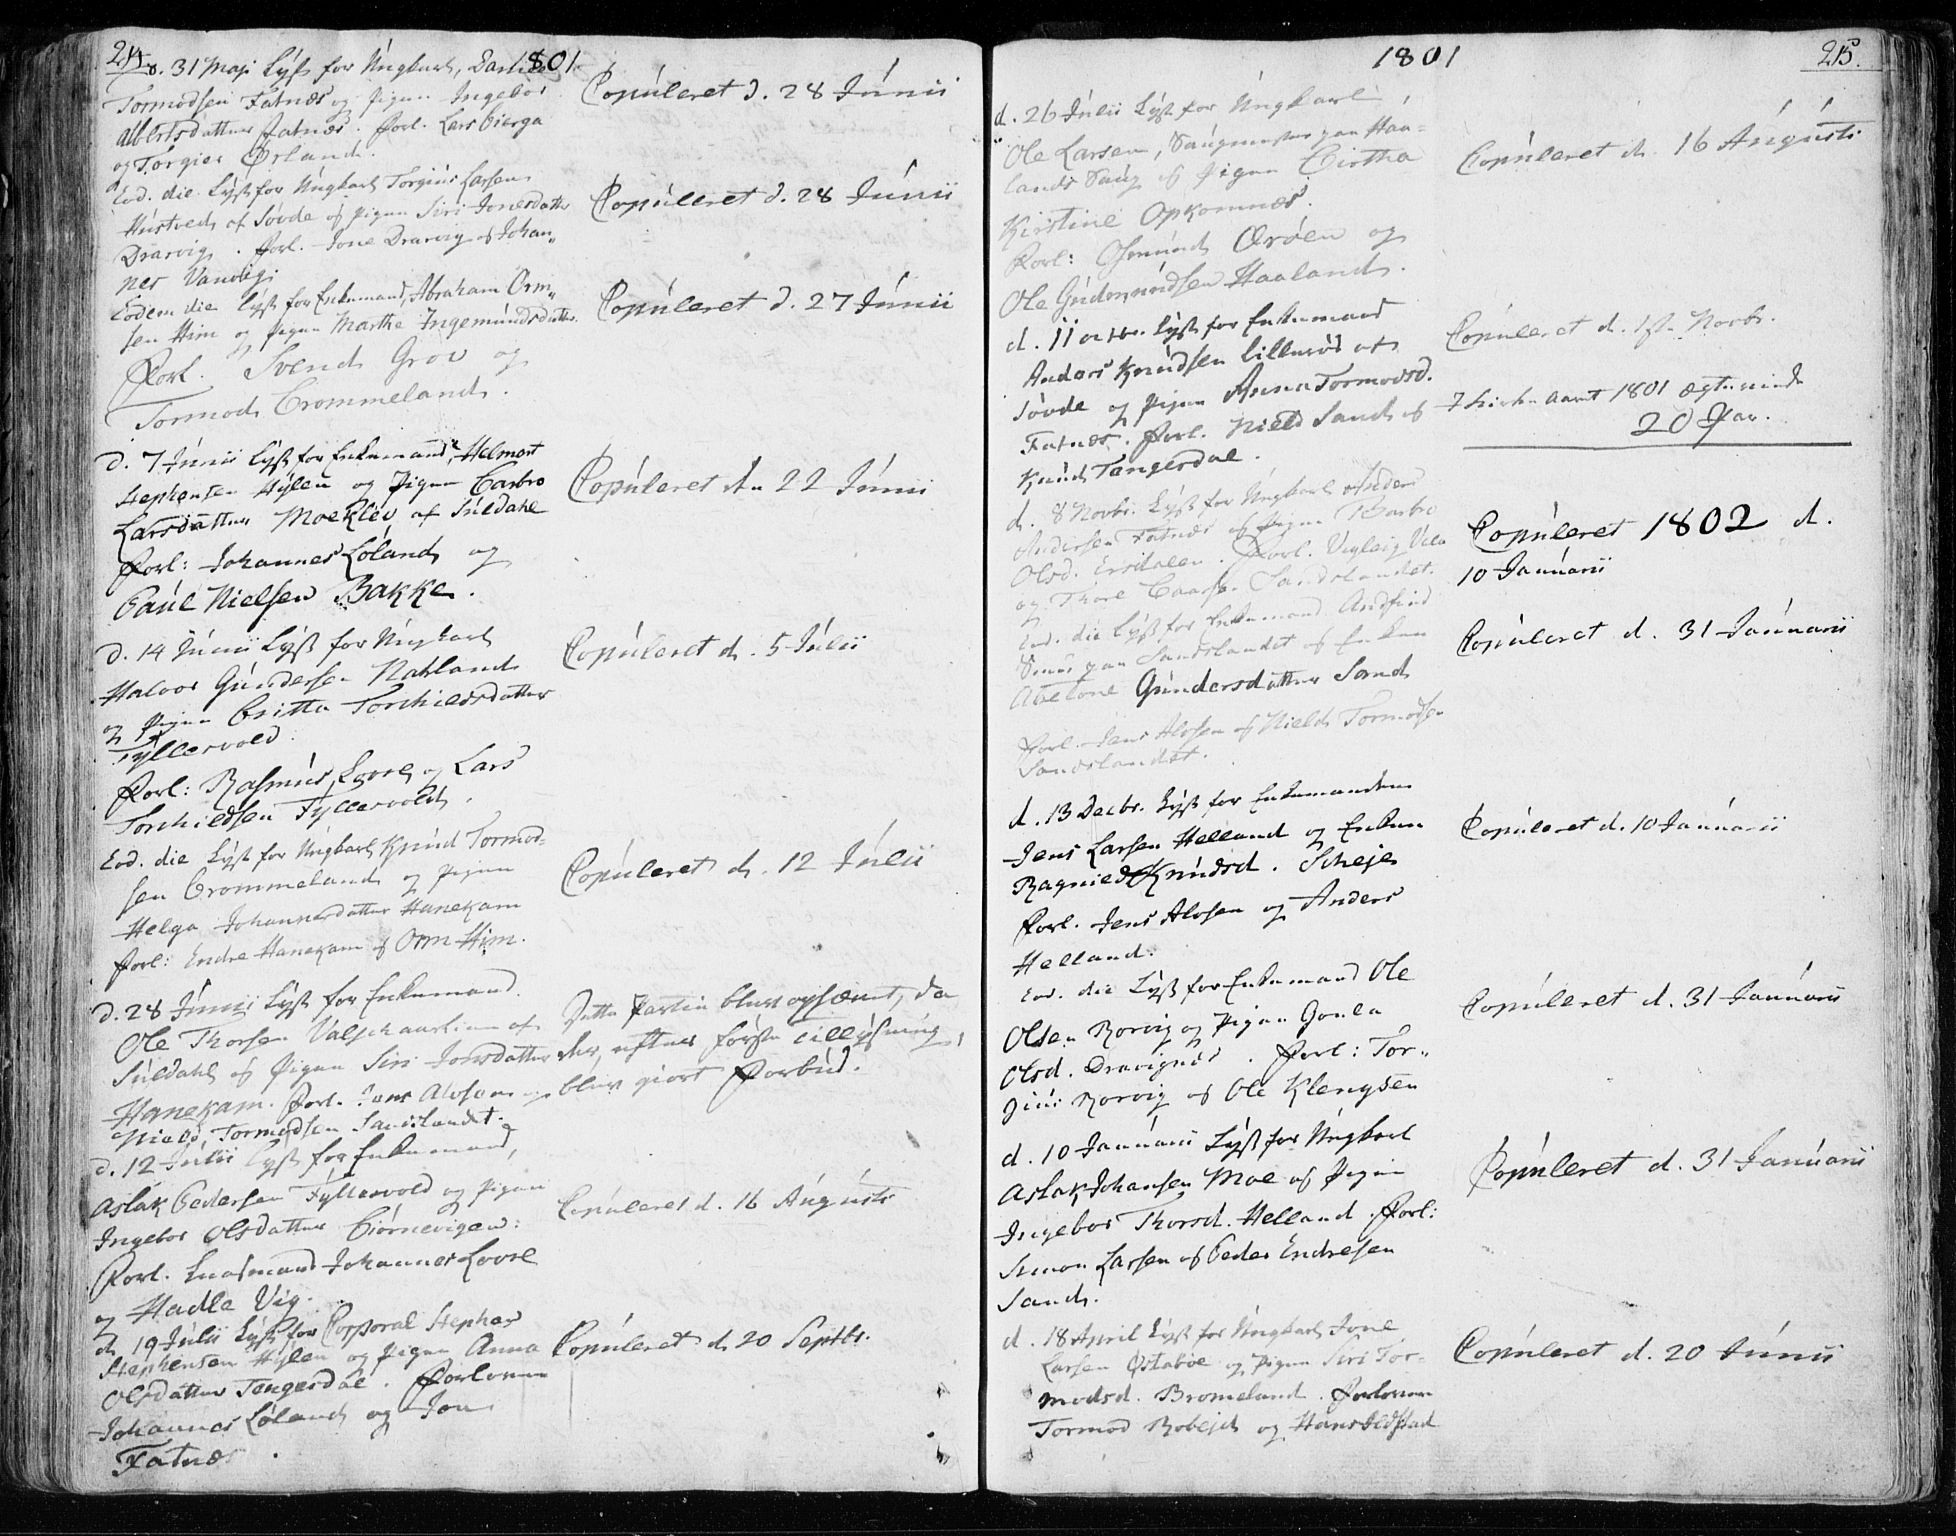 214
801
d. 31 Maji Lyst for Ungkarl,
Tormodsen Fatnæs og Pigen Ingebor
Albertsdatter Fatnæs. Forl. Lars Bierga
og Torgier Ørland.
Copuleret d. 28 Junii
Eod. die Lyst for Ungkarl Torgius Larsen
Hustvedt af Søvde og Pigen Siri Jonesdatter
Drarvig. Forl. Jone Drarvig og Johan„
nes Vandvig.
Copuleret d. 28 Junii
Eodem die Lyst for Enkemand, Abraham Orm„
sen Him og Pigen Marthe Ingemundsdatter
Forl. Svend Grov og
Tormod Brommeland.
Copuleret d. 27 Junii
d. 7 Junii Lyst for Enkemand, Helmort
Stephensen Hylen og Pigen Barbro
Larsdatter Moekløv af Suldahl
Forl: Johannes Løland og
Paul Nielsen Bakke.
Copuleret den 22 Junii
d. 14 Junii Lyst for Ungkarl
Halvor Gundersen Natland
og Pigen Britta Torkieldsdatter
Fyllesvold.
Forl: Rasmus Lovre og Lars
Torkieldsen Fyllesvold.
Copuleret d. 5 Julii
Eod. die Lyst for Ungkarl Knud Tormod=
sen Brommeland og Pigen
Helga Johannesdatter Hanekam
Forl: Endre Hanekam og Orm Him.
Copuleret d. 12 Julii
d. 28 Junii Lyst for Enkemand
Ole Thorsen Valskaar af
Suldahl og Pigen Siri Jonsdatter
Hanekam. Forl. Jens Alvsen og
Niels Tormodsen Sandslandet.
Dette Partie blev opsæmt, da
der, efter første Tillysning,
blev giort Forbud.
d. 12 Julii Lyst for Enkemand,
Aslak Pedersen Fyllesvold og Pigen
Ingebor Olsdatter Biørnevigen:
Forl. Johannes Lovre
og Hadle Vig.
Copuleret d. 16 Augusti
d. 19 Julii Lyst for Corporal Stephen
Stephensen Hylen og Pigen Anna
Olsdatter Tengesdal. Forlovere
Johannes Løland og Jon
Fatnæs.
Copuleret d. 20 Septbr.
1801
215.
d. 26 Julii Lyst for Ungkarl,
Ole Larsen, Saugmester paa Haa=
lands Saug og Pigen Birtha
Kirstine Opkomnæs.
Forl: Osmund Ørøen og
Ole Gudmundsen Haaland.
Copuleret d. 16 Augusti
d. 11 Lyst for Enkemand
Anders Knudsen Lillerød af
Søvde og Pigen Anna Tormodsd.
Fatnæs. Forl. Niels Sand og
Knud Tengesdal.
Copuleret d. 1ste Novbr.
I Kirke Aaret 1801 ægteviede
20 Par.
d. 8 Novbr. Lyst for Ungkarl Anders
Andersen Fatnæs og Pigen Barbro
Olsd. Ersdalen. Forl. Vigleig
og Thore Sandslandet.
Copuleret 1802 d.
10 Januarii
Eod. die Lyst for Enkemand Andfind
paa Sandslandet og Enken
Abelone Gundersdatter Sand
Forl. Jens Alvsen og Niels Tormodsen
Sandslandet.
Copuleret d. 31 Januarii
d. 13 Decbr. Lyst for Enkemanden
Jens Larsen Helland og Enken
Ragnild Knudsd. Scheje
Forl. Jens Alvsen og Anders
Helland.
Copuleret d. 10 Januarii
Eod. die Lyst for Enkemand Ole
Olsen Rorvig og Pigen Goula
Olsd. Dravignæs. Forl: Tor„
gius Rorvig og Ole Klengsen
Copuleret d. 31 Januarii
d. 10 Januarii Lyst for Ungkarl
Aslak Johansen Moe og Pigen
Ingebor Thorsd. Helland. Forl:
Simon Larsen og Peder Endresen
Sand.
Copuleret d. 31 Januarii
d. 18 April Lyst for Ungkarl Jone
Larsen Østabøe og Pigen Siri Tor=
modsd. Bromeland. Forlovere
Tormod Robejd og Hans
Copuleret d. 20 Junii